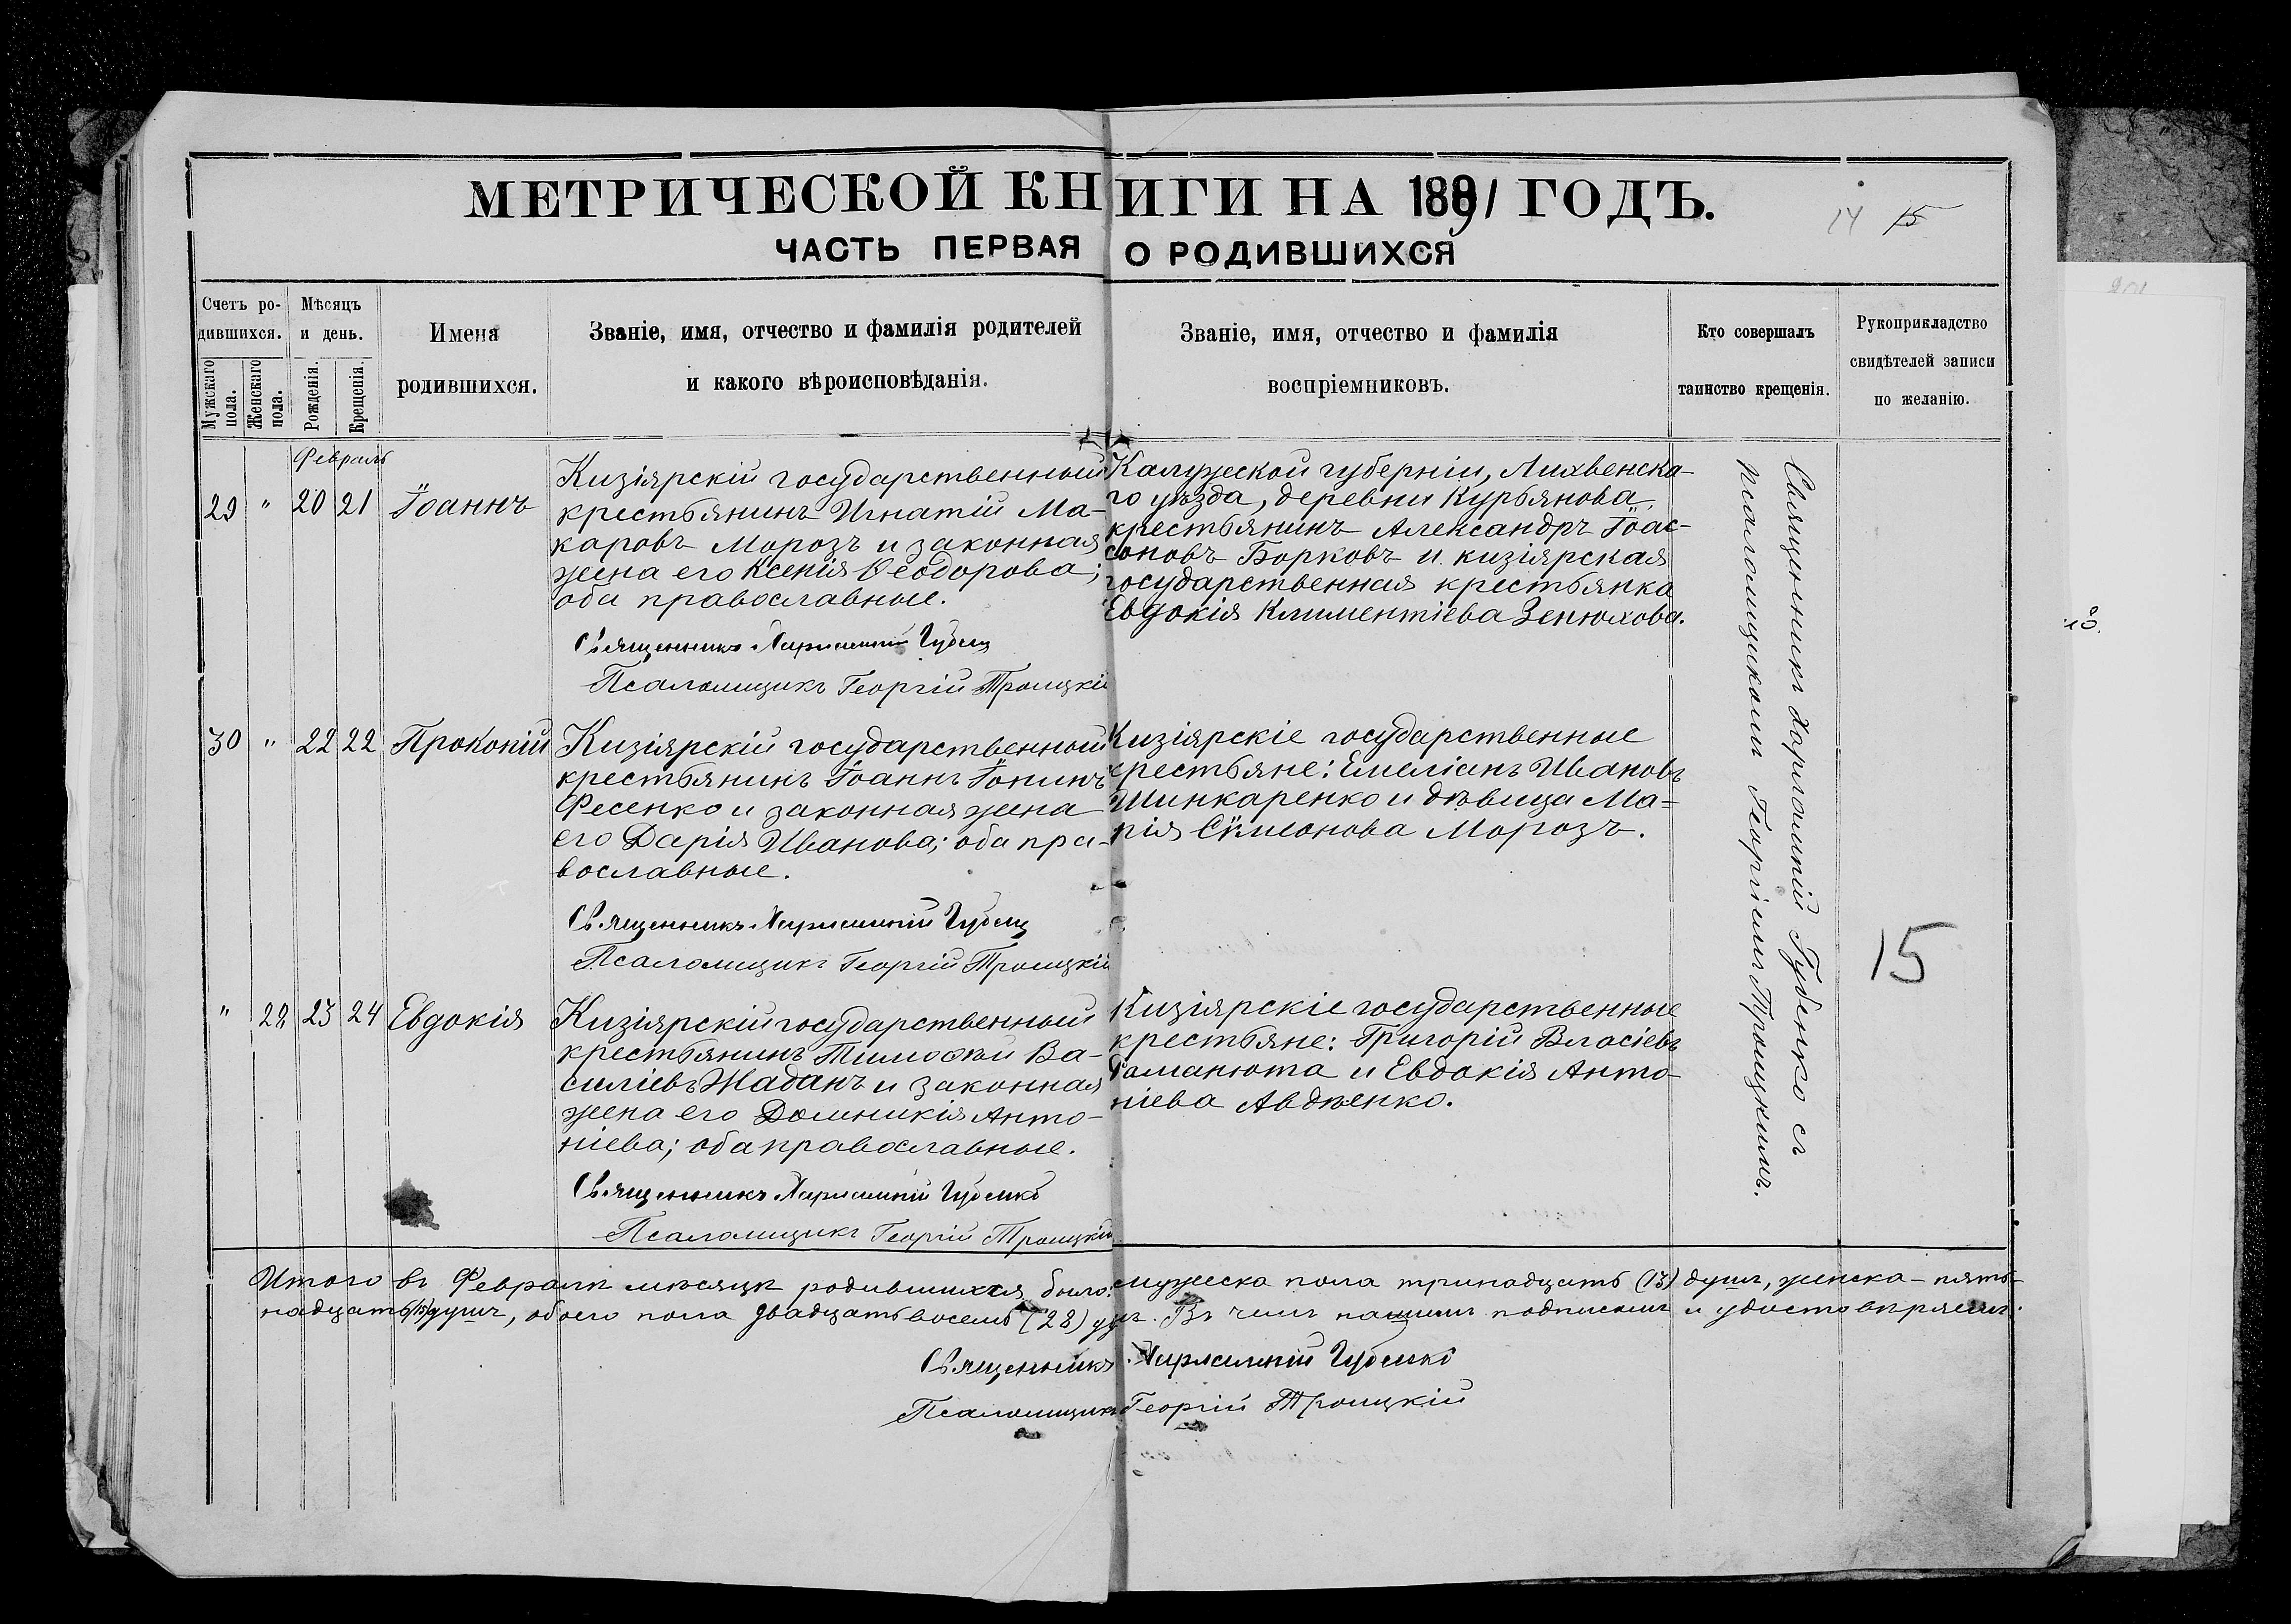 МЕТРИЧЕСКОЙ КНИГИ НА 1891 ГОДЪ.
14 15
ЧАСТЬ ПЕРВАЯ О РОДИВШИХСЯ
Счетъ ро-
дившихся.
Мужскаго пола.
Женскаго пола.
Мѣсяцъ
и день.
Рожденія.
Крещенія.
Имена
родившихся.
Званіе, имя, отчество и фамилія родителей
и какого вѣроисповѣданія.
Званіе, имя, отчество и фамилія
воспріемниковъ.
Кто совершалъ
таинство крещенія.
Рукоприкладство
свидѣтелей записи
по желанію.
Февраль
29 " 20 21 Іоаннъ
Кизіярскій государственный
крестьянинъ Игнатій Ма-
каровъ Морозъ и законная
жена его Ксенія Ѳеодорова;
оба православные.
Священникъ Харлампій Губен
Псаломщикъ Георгій Троицкій
Калужской губерніи, Лихвенска-
го уѣзда, деревни Курьянова,
крестьянинъ Александръ Іоас-
соновъ Борковъ и кизіярская
государственная крестьянка
Евдокія Климентіева Зенюхова.
30 " 22 22 Прокопій
Кизіярскій государственный
крестьянинъ Іоаннъ Іонинъ
Фесенко и законная жена
его Дарія Иванова; оба пра-
вославные.
Священникъ Харлампій Губен
Псаломщикъ Георгій Троицкій
Кизіярскіе государственные
крестьяне: Емеліанъ Ивановъ
Шинкаренко и дѣвица Ма-
рія Симонова Морозъ.
" 22 23 24 Евдокія
Кизіярскій государственный
крестьянинъ Тимоѳей Ва-
силіевъ Жаданъ и законная
жена его Домникія Анто-
ніева; оба православные.
Священникъ Харлампій Губенко
Псаломщикъ Георгій Троицкій
Кизіярскіе государственные
крестьяне: Григорій Власіевъ
Гаманюта и Евдокія Анто-
ніева Авдѣенко.
Священникъ Харлампій Губенко съ
псаломщикомъ Георгіемъ Троицкимъ.
15
Итого въ Февралѣ мѣсяцѣ родившихся было: мужеска пола тринадцать (13) душъ, женска - пят-
надцать (15) душъ, обоего пола двадцать восемь (28) душ. Въ чемъ нашимъ подписомъ и удостовѣряемъ:
Священникъ Харлампій Губенко
Псаломщикъ Георгій Троицкій